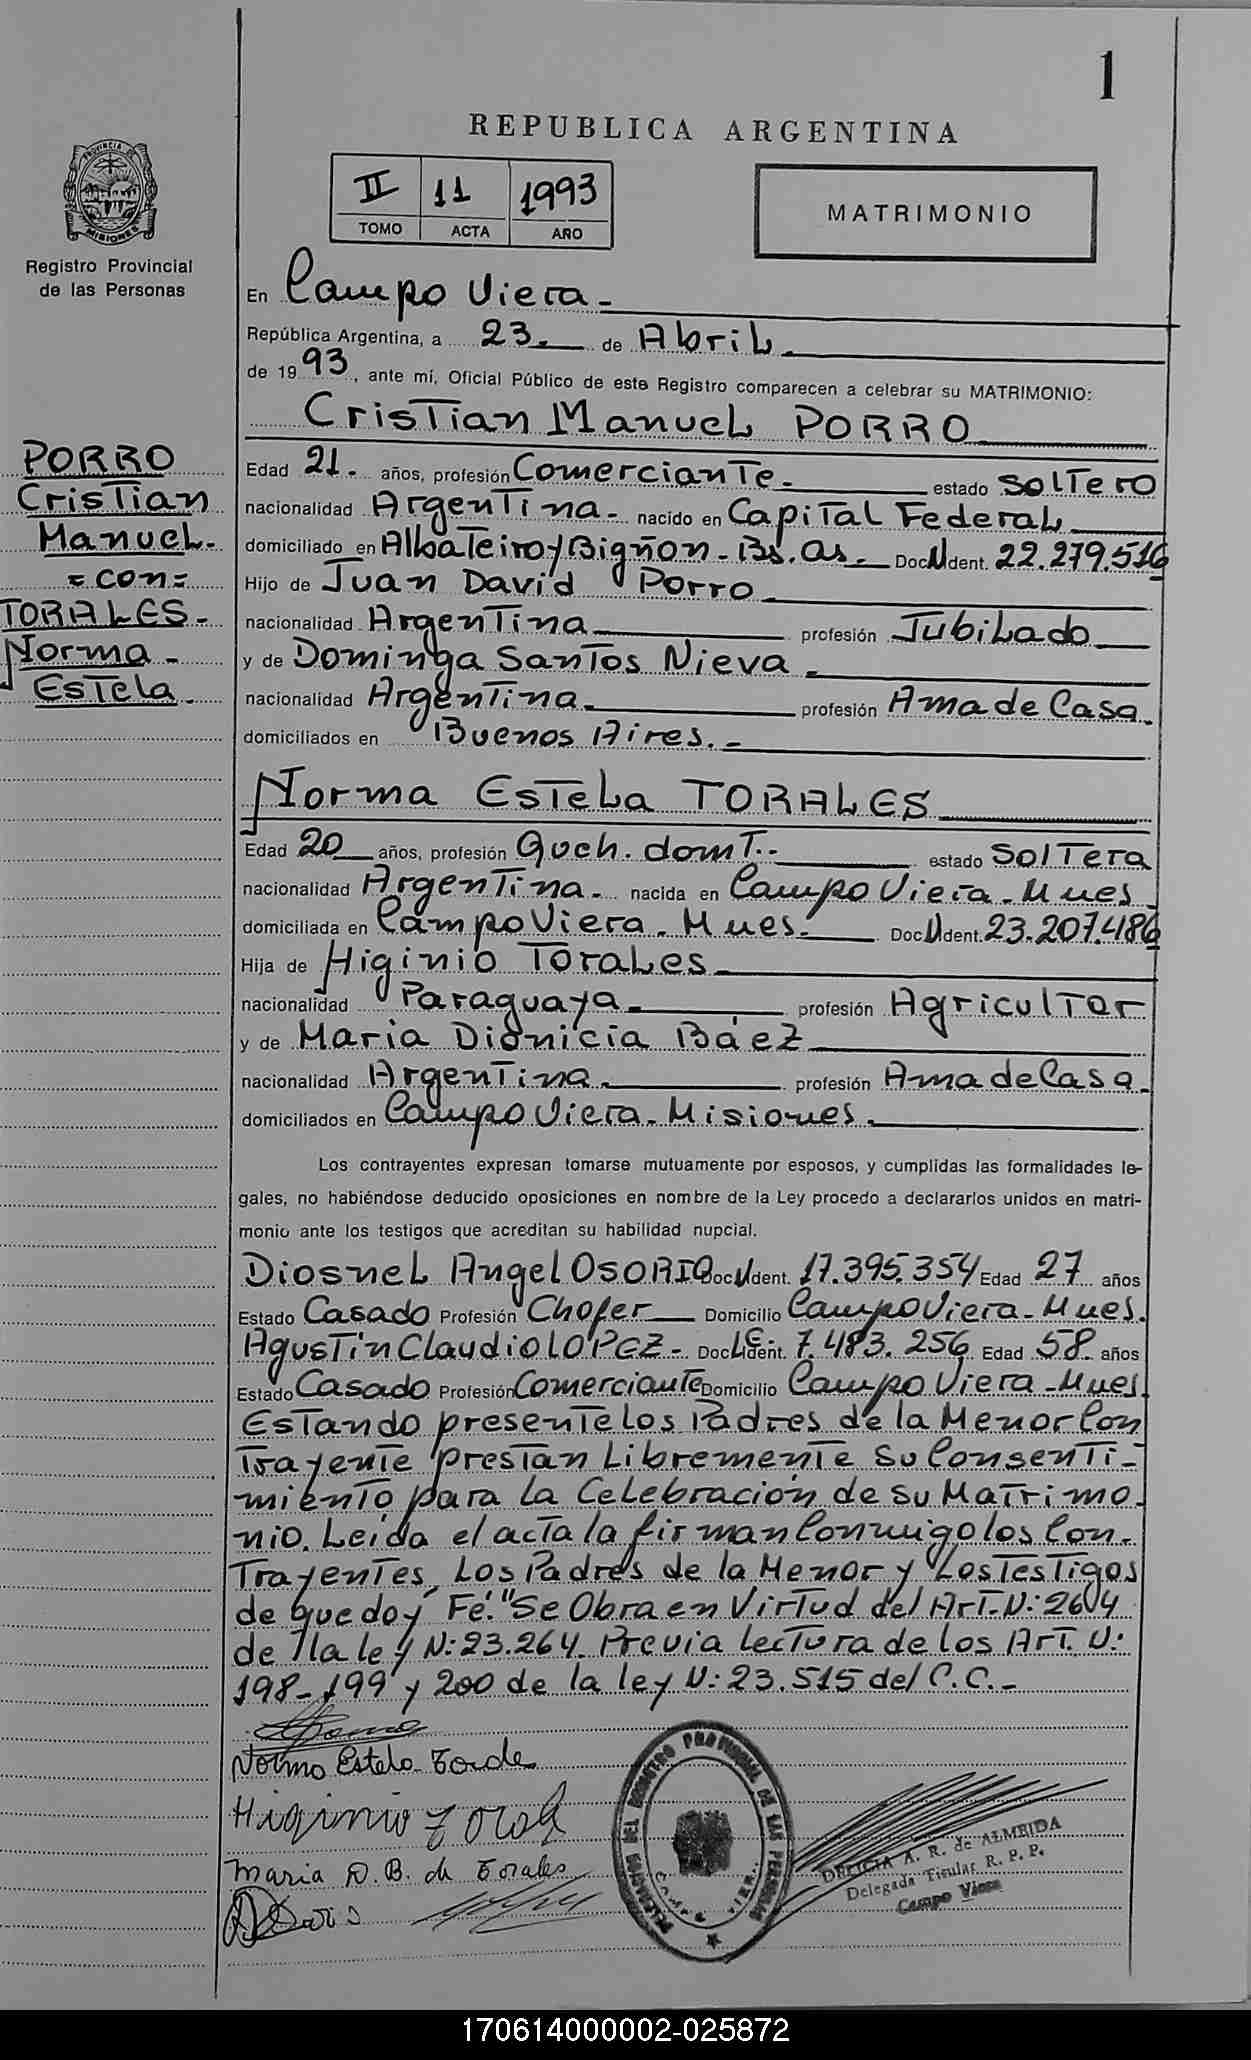 1
REPUBLICA ARGENTINA
II 11 1993
TOMO ACTA AÑO
MATRIMONIO
PROVINCIA DE
MISIONES
Registro Provincial
de las Personas
PORRO
Cristian
Manuel.
= con =
TORALES-
Norma-
Estela-
En Campo Viera-
República Argentina, a 23. de Abril.
de 1993, ante mí, Oficial Público de este Registro comparecen a celebrar su MATRIMONIO:
Cristian Manuel PORRO
Edad 21. años, profesión Comerciante. estado Soltero
nacionalidad Argentina- nacido en Capital Federal
domiciliado en Albateiro y Bigñon- Bs. as. Doc N Ident. 22.279.516
Hijo de Juan David Porro
nacionalidad Argentina profesión Jubilado
y de Dominga Santos Nieva-
nacionalidad Argentina. profesión Ama de Casa.
domiciliados en Buenos Aires.-
Norma Estela TORALES
Edad 20 años, profesión Queh. domt.- estado Soltera
nacionalidad Argentina- nacida en Campo Viera- Mnes
domiciliada en Campo Viera. Mnes. Doc N Ident. 23.207.486
Hija de Higinio Torales
nacionalidad Paraguaya- profesión Agricultor
y de Maria Dionicia Báez
nacionalidad Argentina. profesión Ama de Casa.
domiciliados en Campo Viera- Misiones.
Los contrayentes expresan tomarse mutuamente por esposos, y cumplidas las formalidades le-
gales, no habiéndose deducido oposiciones en nombre de la Ley procedo a declararlos unidos en matri-
monio ante los testigos que acreditan su habilidad nupcial.
Diosnel Angel OSORIO Doc N Ident. 17.395.354 Edad 27 años
Estado Casado Profesión Chofer Domicilio Campo Viera- Mnes.
Agustín Claudio LOPEZ- Doc Ident. 7.483.256 Edad 58. años
Estado Casado Profesión Comerciante Domicilio Campo Viera- Mnes
Estando presente los Padres de la Menor Con
trayente prestan Libremente su Consenti-
miento para la Celebración de su Matrimo-
nio. Leída el acta la firman Conmigo los Con-
trayentes, Los Padres de la Menor y Los Testigos
de que doy Fé. "Se Obra en Virtud del Art. N: 2604
de la ley N: 23.264. Previa lectura de los Art. N:
198-199 y 200 de la ley N: 23.515 del C.C.-
Norma Estela
Higinio
Maria D. B. de Torales
REGISTRO PROVINCIAL DE LAS PERSONAS
A. R. de ALMEIDA
Delegada Titular R. P. P.
Campo Viera
170614000002-025872